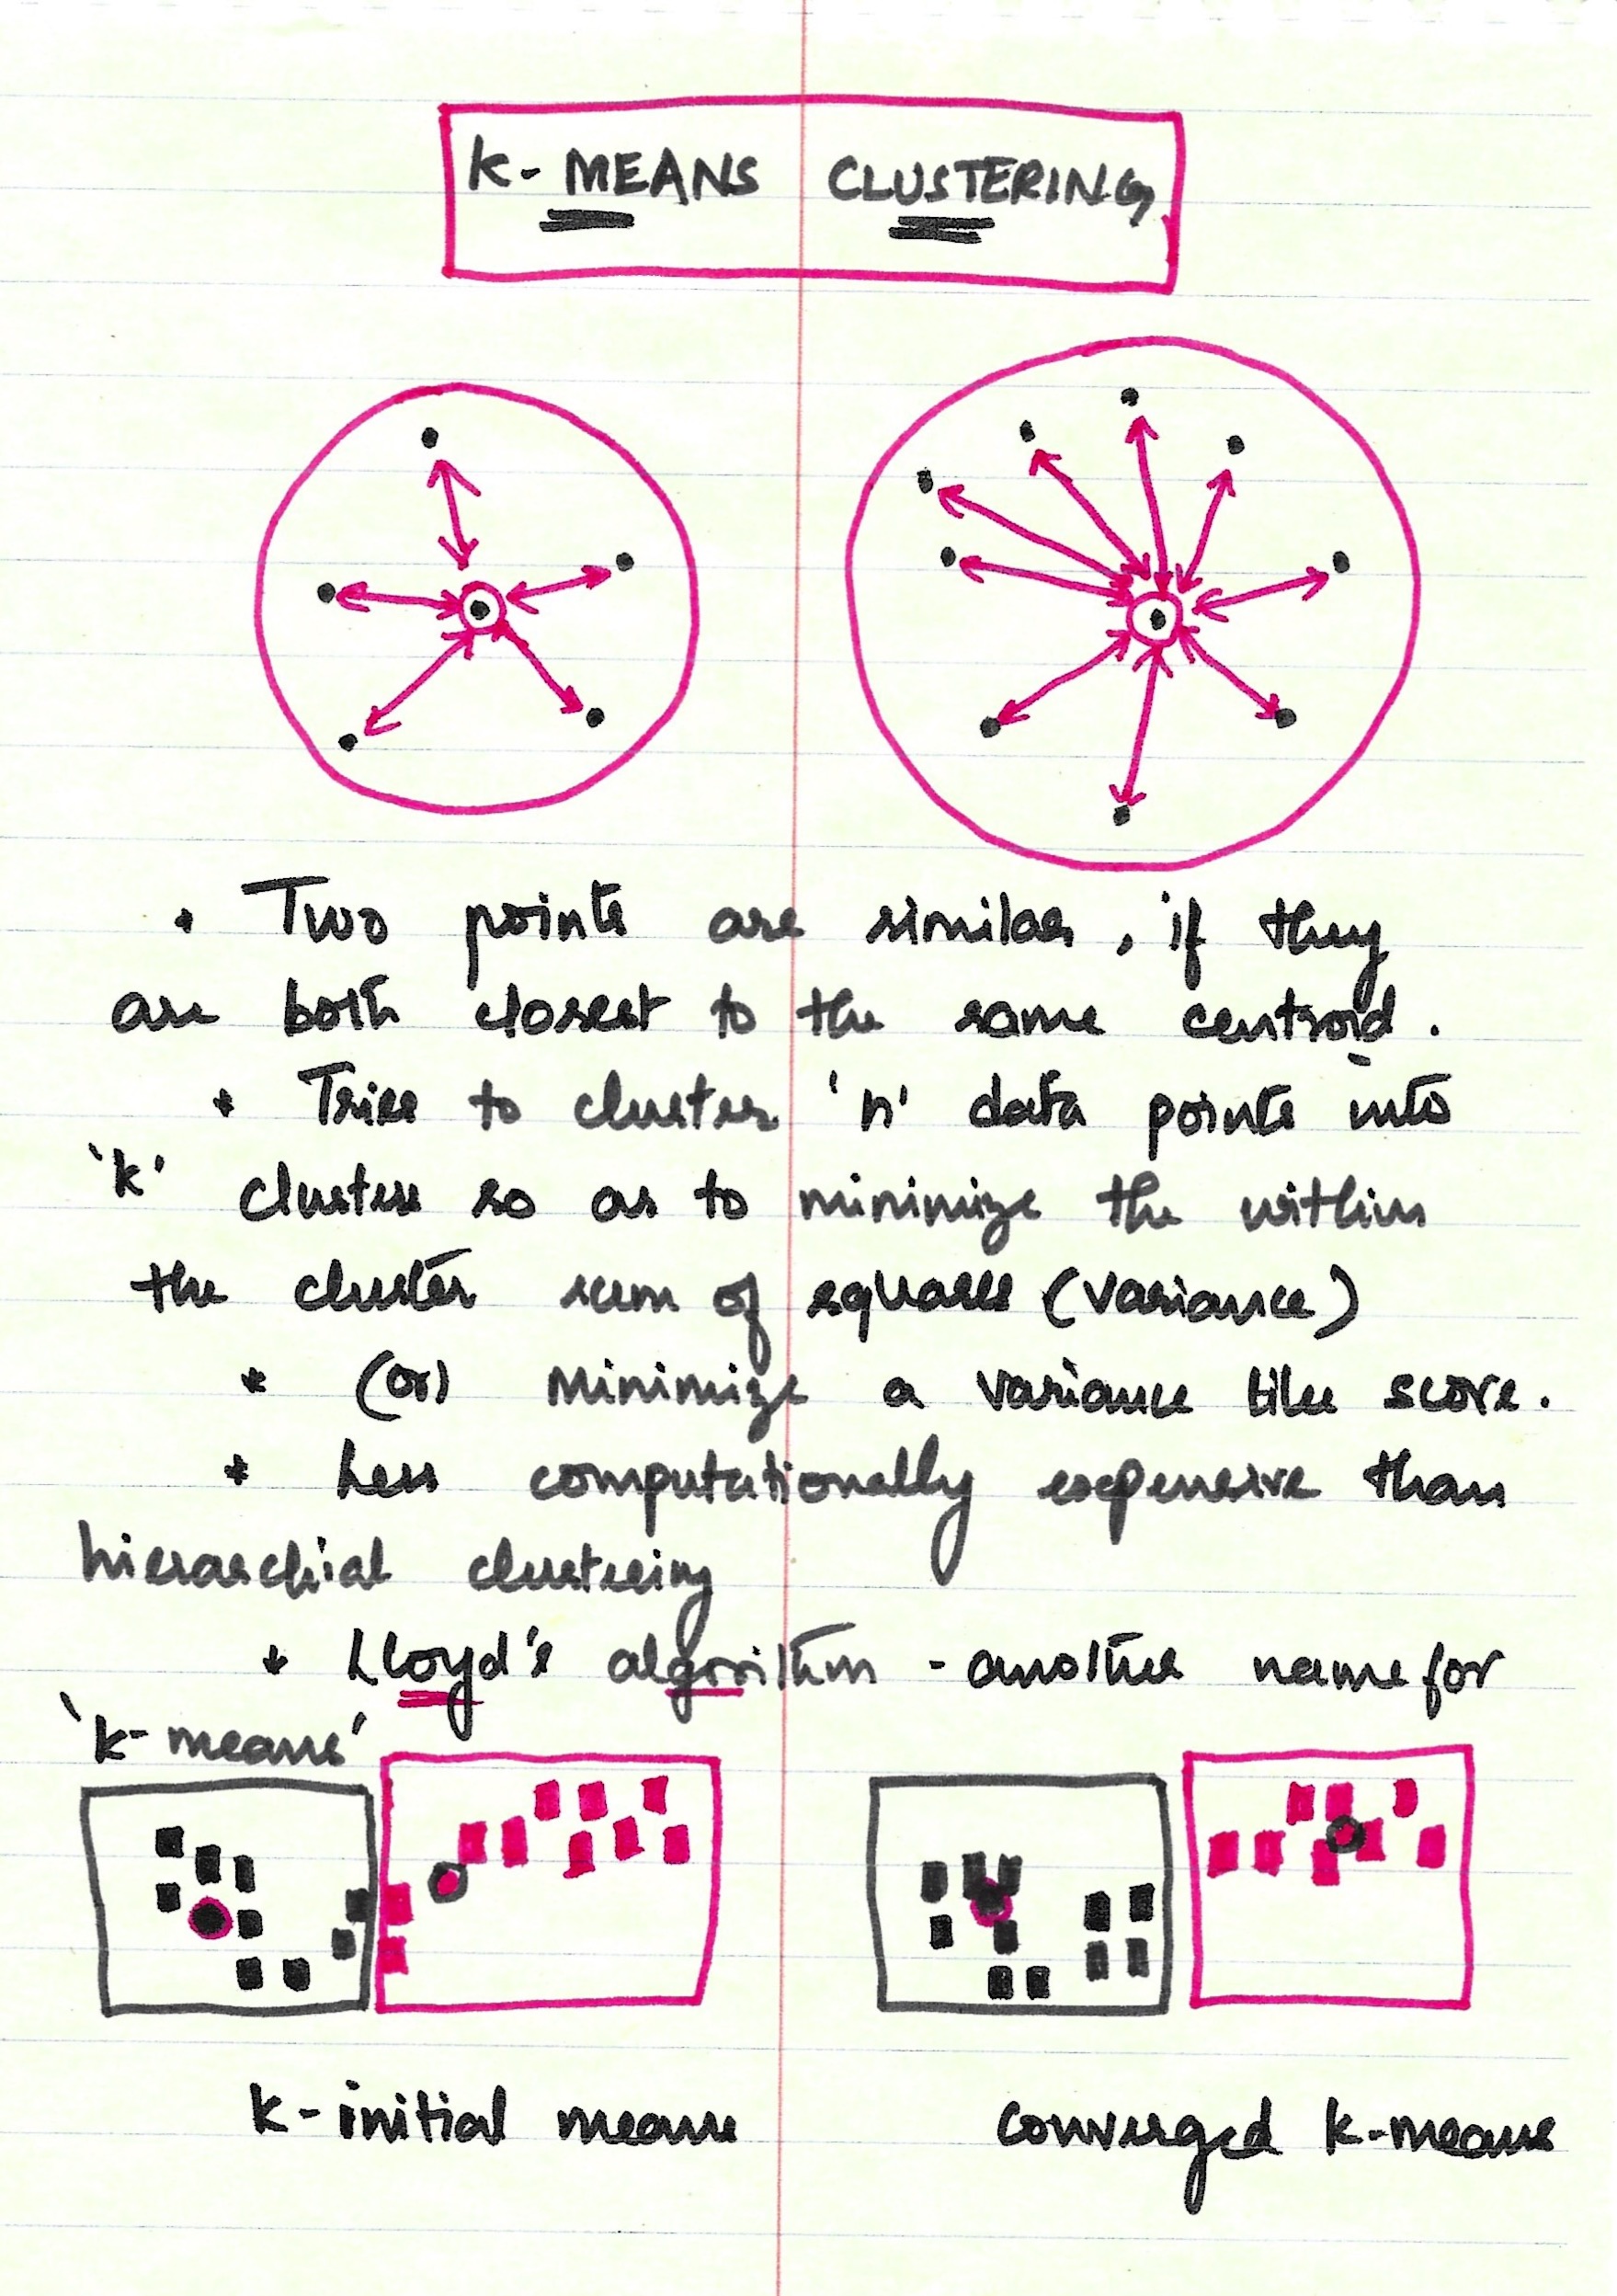 K-MEANS CLUSTERING
* Two points are similar, if they
are both closest to the same centroid.
* Tries to cluster 'n' data points into
'k' clusters so as to minimize the within
the cluster sum of squares (variance)
* (or) Minimize a variance like score.
* Less computationally expensive than
hierarchial clustering
* Lloyd's algorithm - another name for
'k-means'
k-initial means
converged k-means